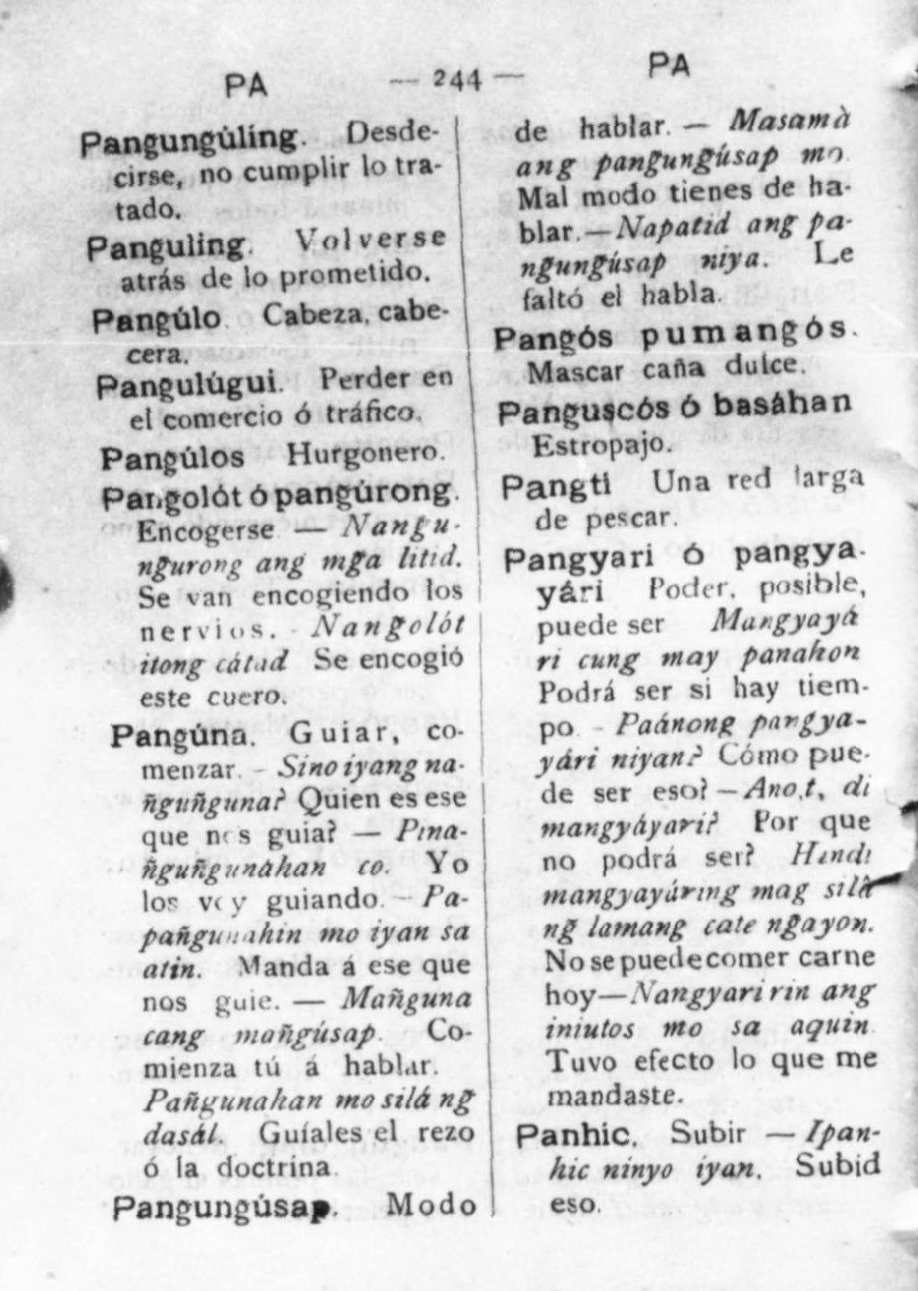 PA — 244 — PA
Pangungúling. Desde-
cirse, no cumplir lo tra-
tado.
Panguling. Volverse
atrás de lo prometido.
Pangúlo. Cabeza, cabe-
cera.
Pangulúgui. Perder en
el comercio ó tráfico.
Pangúlos Hurgonero.
Pangolót ó pangúrong.
Encogerse — Nangu-
ngurong ang mga litid.
Se van encogiendo los
nervios. - Nangolót
itong cátad Se encogió
este cuero.
Pangúna. Guiar, co-
menzar. - Sino iyang na-
ñguñguna? Quien es ese
que nos guia? — Pina-
ñguñgunahan co. Yo
los voy guiando. — Pa-
pañgunahin mo iyan sa
atin. Manda á ese que
nos guie. — Mañguna
cang mañgúsap. Co-
mienza tú á hablar.
Pañgunahan mo silá ng
dasál. Guíales el rezo
ó la doctrina.
Pangungúsap. Modo
de hablar. — Masamà
ang pangungúsap mo
Mal modo tienes de ha-
blar.—Napatid ang pa-
ngungúsap niya. Le
faltó el habla.
Pangós pumangós.
Mascar caña dulce.
Panguscós ó basáhan
Estropajo.
Pangti Una red larga
de pescar.
Pangyari ó pangya-
yári Poder, posible,
puede ser Mangyayá
ri cung may panahon
Podrá ser si hay tiem-
po. - Paánong pangya-
yári niyan? Cómo pue-
de ser eso? — Ano,t, di
mangyáyari? Por que
no podrá ser? Hindi
mangyayáring mag silâ
ng lamang cate ngayon.
No se puede comer carne
hoy—Nangyari rin ang
iniutos mo sa aquin
Tuvo efecto lo que me
mandaste.
Panhic. Subir — Ipan-
hic ninyo iyan. Subid
eso.